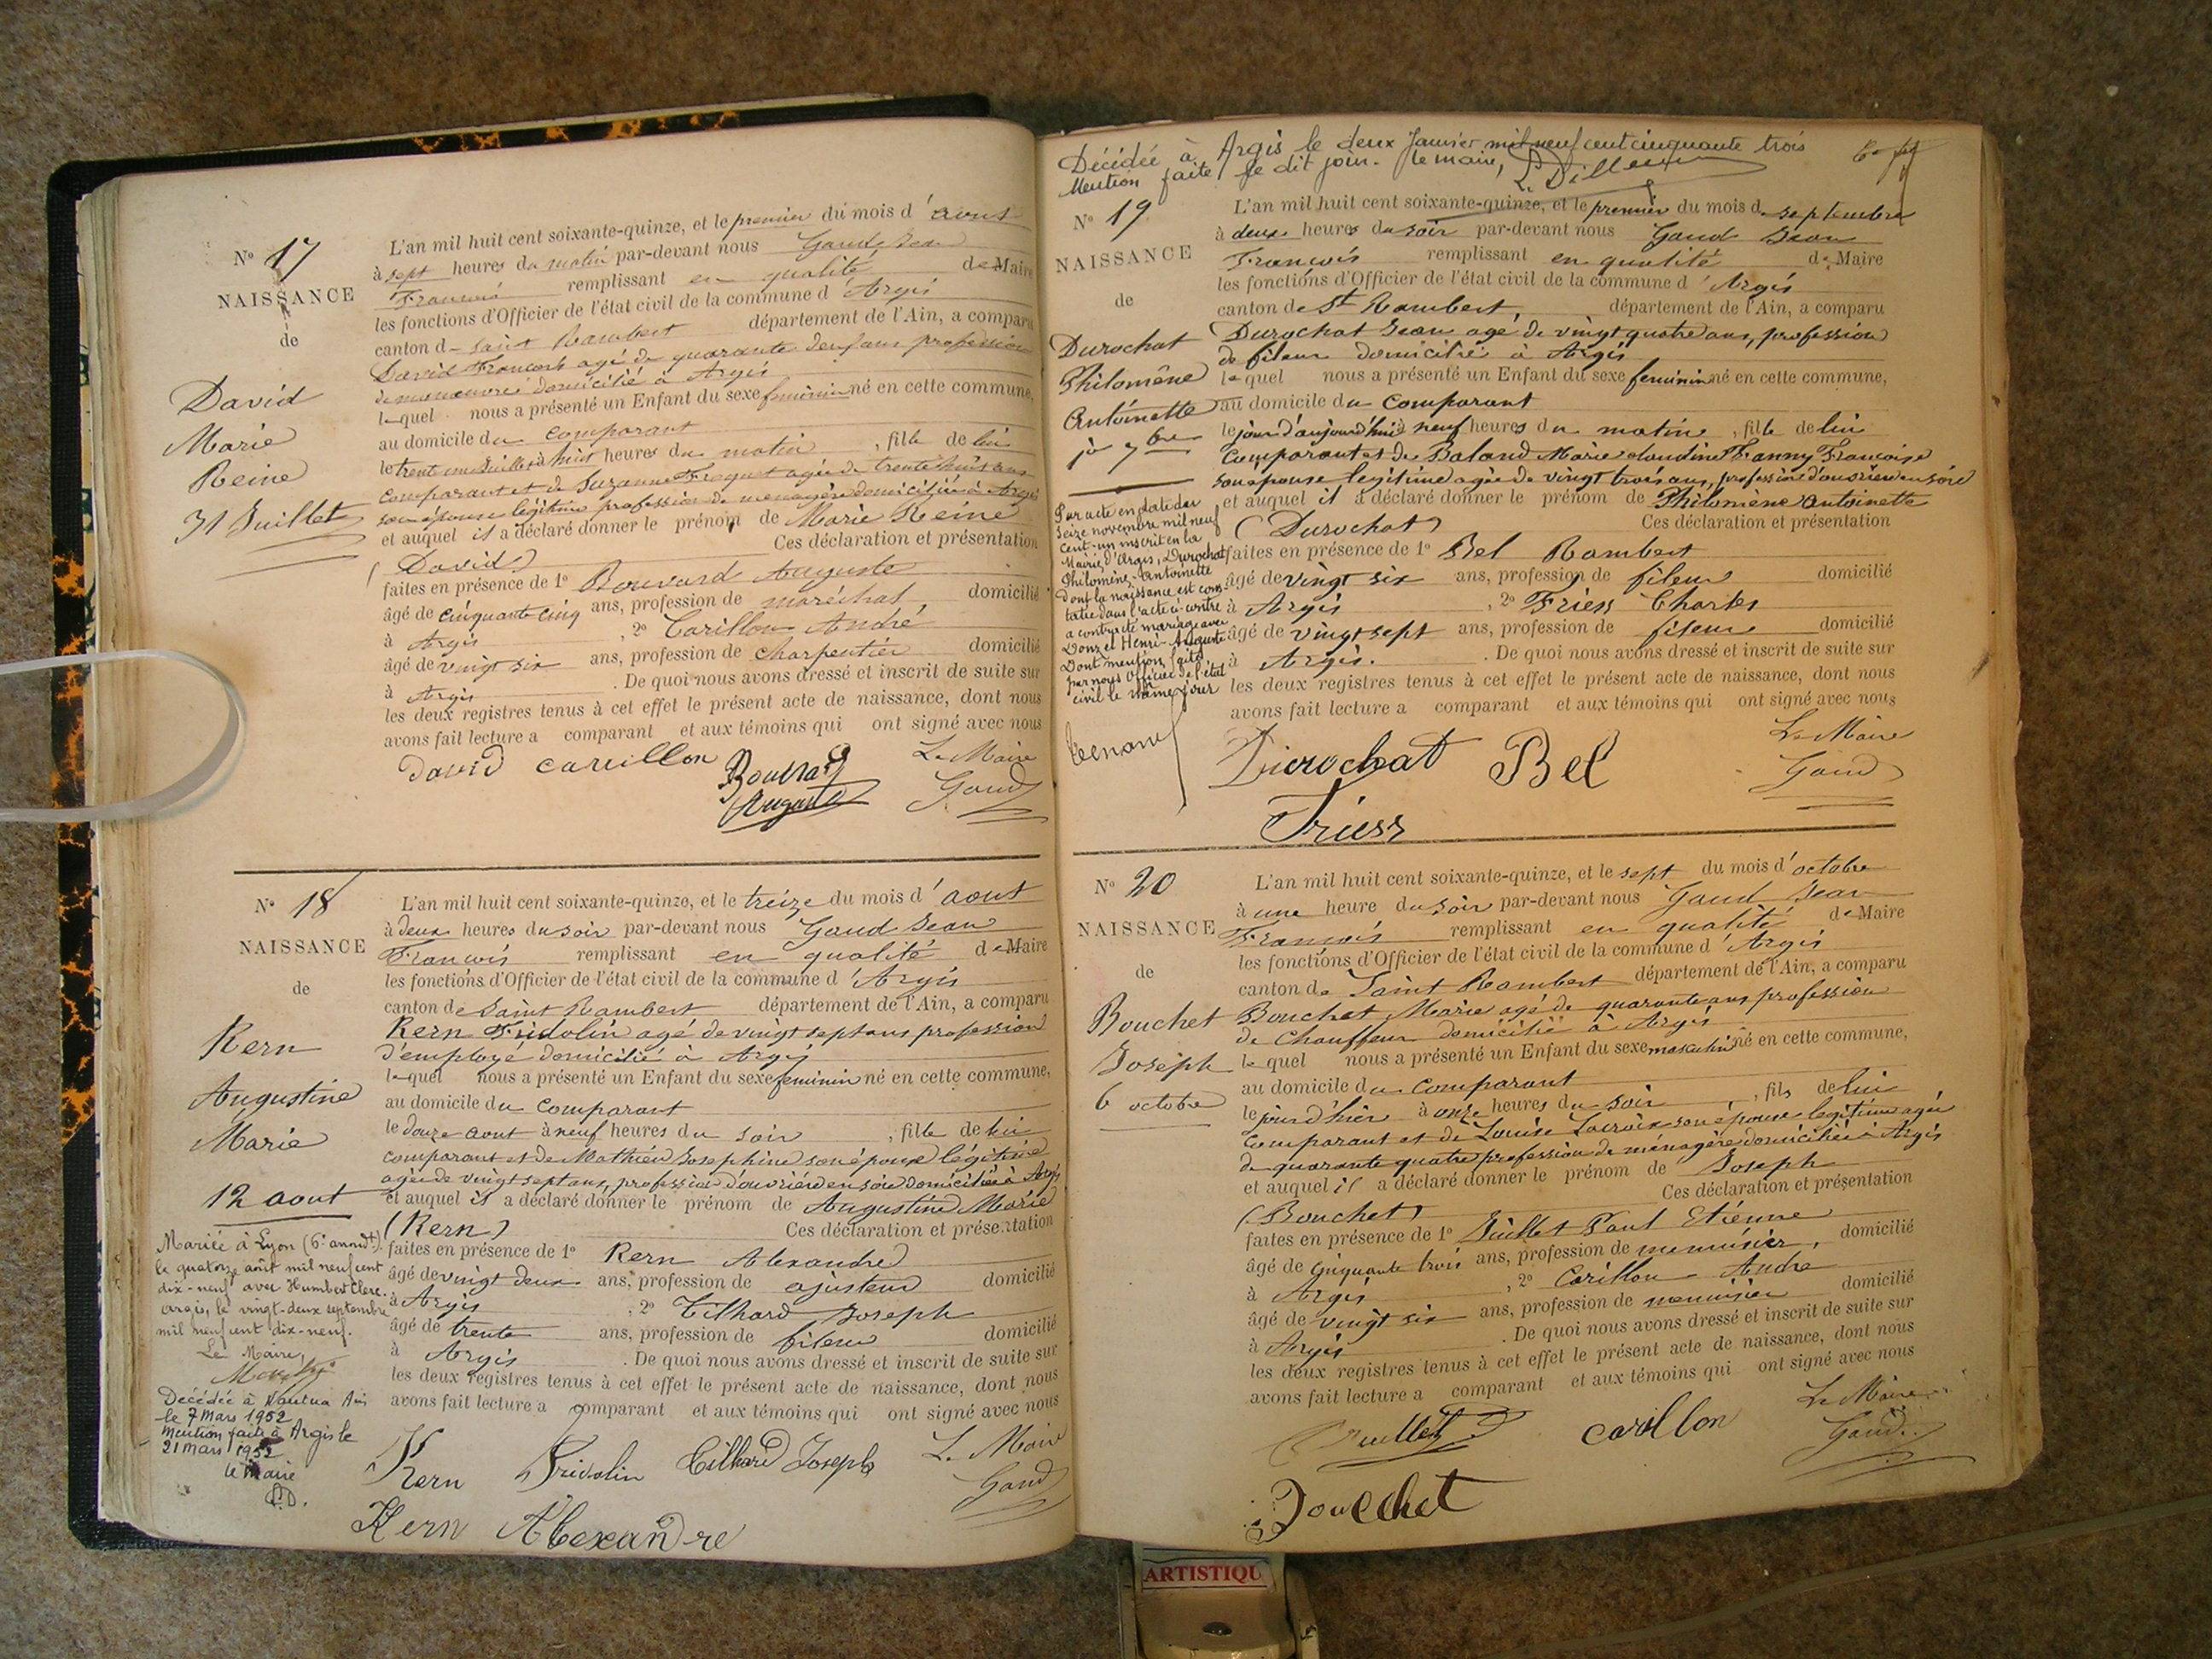 N° 17
NAISSANCE
de
David
Marie
Reine
31 Juillet
L'an mil huit cent soixante-quinze, et le premier du mois d'aout
à sept heures du matin par-devant nous Gaud Jean
François remplissant en qualité de Maire
les fonctions d'Officier de l'état civil de la commune d'Argis
canton de saint Rambert département de l'Ain, a comparu
David François agé de quarante deux ans profession
de manœuvre domicilié à Argis
lequel nous a présenté un Enfant du sexe feminin né en cette commune,
au domicile du comparant
le trente un Juillet à huit heures du matin, fille de lui
comparant et de Suzanne agée de trente huit ans
son épouse légitime profession de menagère domiciliée à Argis
et auquel il a déclaré donner le prénom de Marie Reine
(David) Ces déclaration et présentation
faites en présence de 1° Bouvard Auguste
âgé de cinquante cinq ans, profession de maréchal, domicilié
à Argis, 2° Carillon André
âgé de vingt six ans, profession de charpentier domicilié
à Argis. De quoi nous avons dressé et inscrit de suite sur
les deux registres tenus à cet effet le présent acte de naissance, dont nous
avons fait lecture a comparant et aux témoins qui ont signé avec nous
David carillon Bouvard Auguste Le Maire Gaud
N° 18
NAISSANCE
de
Kern
Augustine
Marie
12 aout
Mariée à Lyon (6e arrondt)
le quatorze août mil neuf cent
dix-neuf avec Humbert Clerc.
argis, le vingt-deux septembre
mil neuf cent dix-neuf.
Le Maire,
Décédée à Nantua Ain
le 7 Mars 1952
Mention faite à Argis le
21 mars 1952
le Maire
L'an mil huit cent soixante-quinze, et le treize du mois d'aout
à deux heures du soir par-devant nous Gaud Jean
François remplissant en qualité de Maire
les fonctions d'Officier de l'état civil de la commune d'Argis
canton de Saint Rambert département de l'Ain, a comparu
Kern Fridolin agé de vingt sept ans profession
d'employé domicilié à Argis
lequel nous a présenté un Enfant du sexe feminin né en cette commune,
au domicile du comparant
le douze aout à neuf heures du soir, fille de lui
comparant et de Mathieu Josephine son épouse légitime
agée de vingt sept ans, profession d'ouvrière en soie domiciliée à Argis
et auquel il a déclaré donner le prénom de Augustine Marie
(Kern) Ces déclaration et présentation
faites en présence de 1° Kern Alexandre
âgé de vingt deux ans, profession de ajusteur domicilié
à Argis, 2° Tilhard Joseph
âgé de trente ans, profession de fileur domicilié
à Argis. De quoi nous avons dressé et inscrit de suite sur
les deux registres tenus à cet effet le présent acte de naissance, dont nous
avons fait lecture a comparant et aux témoins qui ont signé avec nous
Kern Fridolin Tilhard Joseph Le Maire Gaud
Kern Alexandre
Décédée à Argis le deux Janvier mil neuf cent cinquante trois
Mention faite le dit jour. le maire,
N° 19
NAISSANCE
de
Durochat
Philomène
Antoinette
1er 7bre
Par acte en date du
seize novembre mil neuf
cent-un inscrit en la
Mairie d'Argis, Durochat
Philomène-Antoinette
dont la naissance est cons-
tatée dans l'acte ci-contre
a contracté mariage avec
Donzel Henri-Auguste
Dont mention faite
par nous Officier de l'état
civil le même jour
L'an mil huit cent soixante-quinze, et le premier du mois de septembre
à deux heures du soir par-devant nous Gaud Jean
François remplissant en qualité de Maire
les fonctions d'Officier de l'état civil de la commune d'Argis
canton de St Rambert, département de l'Ain, a comparu
Durochat Jean agé de vingt quatre ans, profession
de fileur domicilié à Argis
lequel nous a présenté un Enfant du sexe feminin né en cette commune,
au domicile du comparant
le jour d'aujourd'hui à neuf heures du matin, fille de lui
comparant et de Baland Marie claudine Fanny Françoise
son epouse legitime agée de vingt trois ans, profession d'ouvrière en soie
et auquel il a déclaré donner le prénom de Philomène Antoinette
(Durochat) Ces déclaration et présentation
faites en présence de 1° Bel Rambert
âgé de vingt six ans, profession de fileur domicilié
à Argis, 2° Friess Charles
âgé de vingt sept ans, profession de fileur domicilié
à Argis. De quoi nous avons dressé et inscrit de suite sur
les deux registres tenus à cet effet le présent acte de naissance, dont nous
avons fait lecture a comparant et aux témoins qui ont signé avec nous
Durochat Bel Le Maire Gaud
Friess
N° 20
NAISSANCE
de
Bouchet
Joseph
6 octobre
L'an mil huit cent soixante-quinze, et le sept du mois d'octobre
à une heure du soir par-devant nous Gaud Jean
François remplissant en qualité de Maire
les fonctions d'Officier de l'état civil de la commune d'Argis
canton de Saint Rambert département de l'Ain, a comparu
Bouchet Marie agé de quarante ans profession
de Chauffeur domicilié à Argis
lequel nous a présenté un Enfant du sexe masculin né en cette commune,
au domicile du comparant
le jour d'hier à onze heures du soir, fils de lui
comparant et de Louise Lacroix son épouse legitime agée
de quarante quatre profession de ménagère domiciliée à Argis
et auquel il a déclaré donner le prénom de Joseph
(Bouchet) Ces déclaration et présentation
faites en présence de 1° Juillet Paul Etienne
âgé de cinquante trois ans, profession de menuisier, domicilié
à Argis, 2° Carillon André
âgé de vingt six ans, profession de menuisier domicilié
à Argis. De quoi nous avons dressé et inscrit de suite sur
les deux registres tenus à cet effet le présent acte de naissance, dont nous
avons fait lecture a comparant et aux témoins qui ont signé avec nous
Juillet carillon Le Maire Gaud
Bouchet
ARTISTIQU